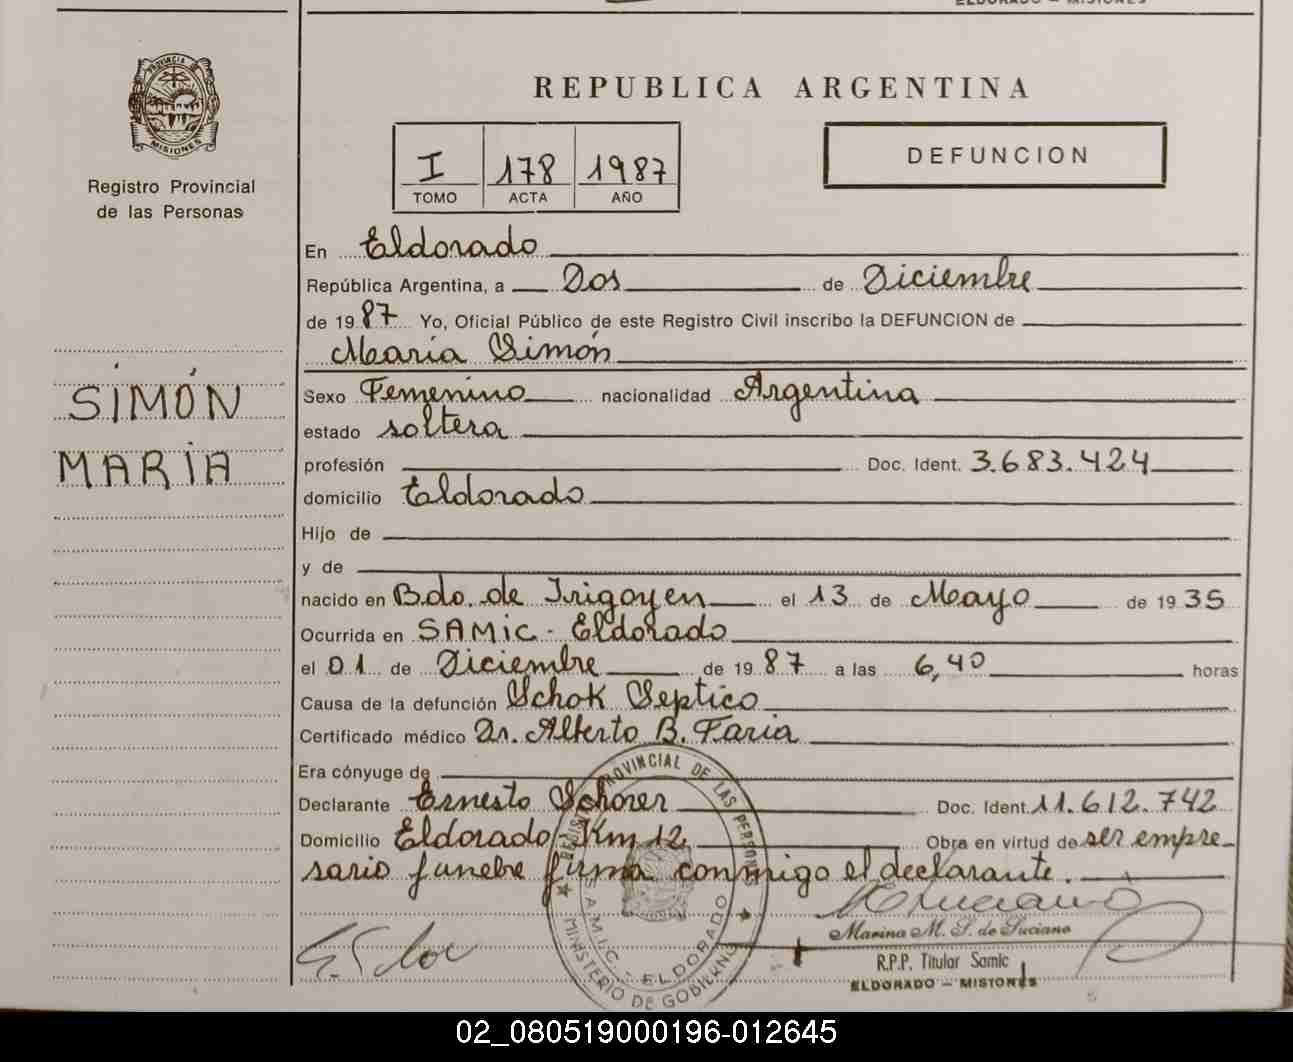 ELDORADO – MISIONES
PROVINCIA DE
MISIONES
Registro Provincial
de las Personas
SIMÓN
MARIA
REPUBLICA ARGENTINA
I 178 1987
TOMO ACTA AÑO
DEFUNCION
En Eldorado
República Argentina, a Dos de Diciembre
de 1987 Yo, Oficial Público de este Registro Civil inscribo la DEFUNCION de
Maria Simón
Sexo Femenino nacionalidad Argentina
estado soltera
profesión Doc. Ident. 3.683.424
domicilio Eldorado
Hijo de
y de
nacido en Bdo. de Irigoyen el 13 de Mayo de 1935
Ocurrida en SAMiC - Eldorado
el 01 de Diciembre de 1987 a las 6,40 horas
Causa de la defunción Schok Septico
Certificado médico Dr. Alberto B. Faria
Era cónyuge de
Declarante Ernesto Schorer Doc. Ident. 11.612.742
Domicilio Eldorado Km 12 Obra en virtud de ser empre-
sario funebre firma conmigo el declarante.
REGISTRO PROVINCIAL DE LAS PERSONAS
S.A.M.I.C. - ELDORADO
MINISTERIO DE GOBIERNO
Marina M. S. de Luciano
R.P.P. Titular Samic
ELDORADO – MISIONES
02_080519000196-012645